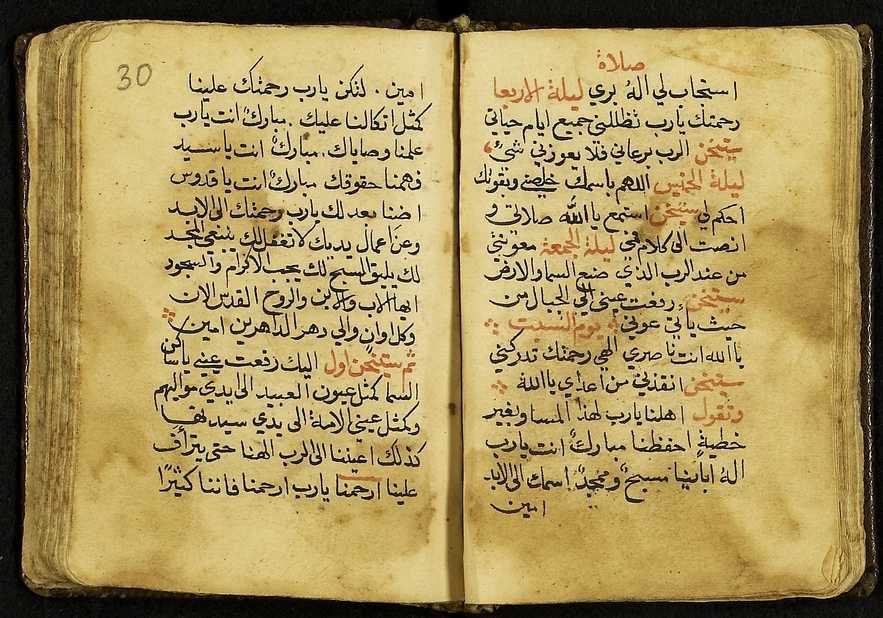 صلاة
استجاب لي اله بري ليلة الاربعا
رحمتك يارب تظللني جميع ايام حياتي
ستيخن الرب يرعاني فلا يعوزني شئ
ليلة الخميس اللهم باسمك خلصني وبقوتك
احكم لي ستيخن استمع يا الله صلاتي و
انصت الى كلام فمي ليلة الجمعة معونتي
من عند الرب الذي صنع السما والارض
ستيخن رفعت عيني الي الجبال من
حيث ياتي عوني يوم السبت
يا الله انت ناصري الهي رحمتك تدركني
ستيخن انقذني من اعداي يا الله
وتقول اهلنا يارب لهذا المسا وبغير
خطية احفظنا مبارك انت يارب
اله اباينا مسبح وممجد اسمك الى الابد
امين
30
امين . لتكن يارب رحمتك علينا
كمثل اتكالنا عليك . مبارك انت يارب
علمنا وصاياك . مبارك انت يا سيد
فهمنا حقوقك مبارك انت يا قدوس
اضنا بعدلك يارب رحمتك الى الابد
وعن اعمال يديك لا تغفل لك ينبغي المجد
لك يليق السبح لك يجب الاكرام والسجود
ايها الاب والابن والروح القدس الان
وكل اوان والي دهر الداهرين امين
ثم ستيخن اول اليك رفعت عيني يا ساكن
السما كمثل عيون العبيد الى ايدي مواليهم
وكمثل عيني الامة الى يدي سيدتها
كذلك اعيننا الى الرب الهنا حتى يتراف
علينا ارحمنا يارب ارحمنا فاننا كثيرًا